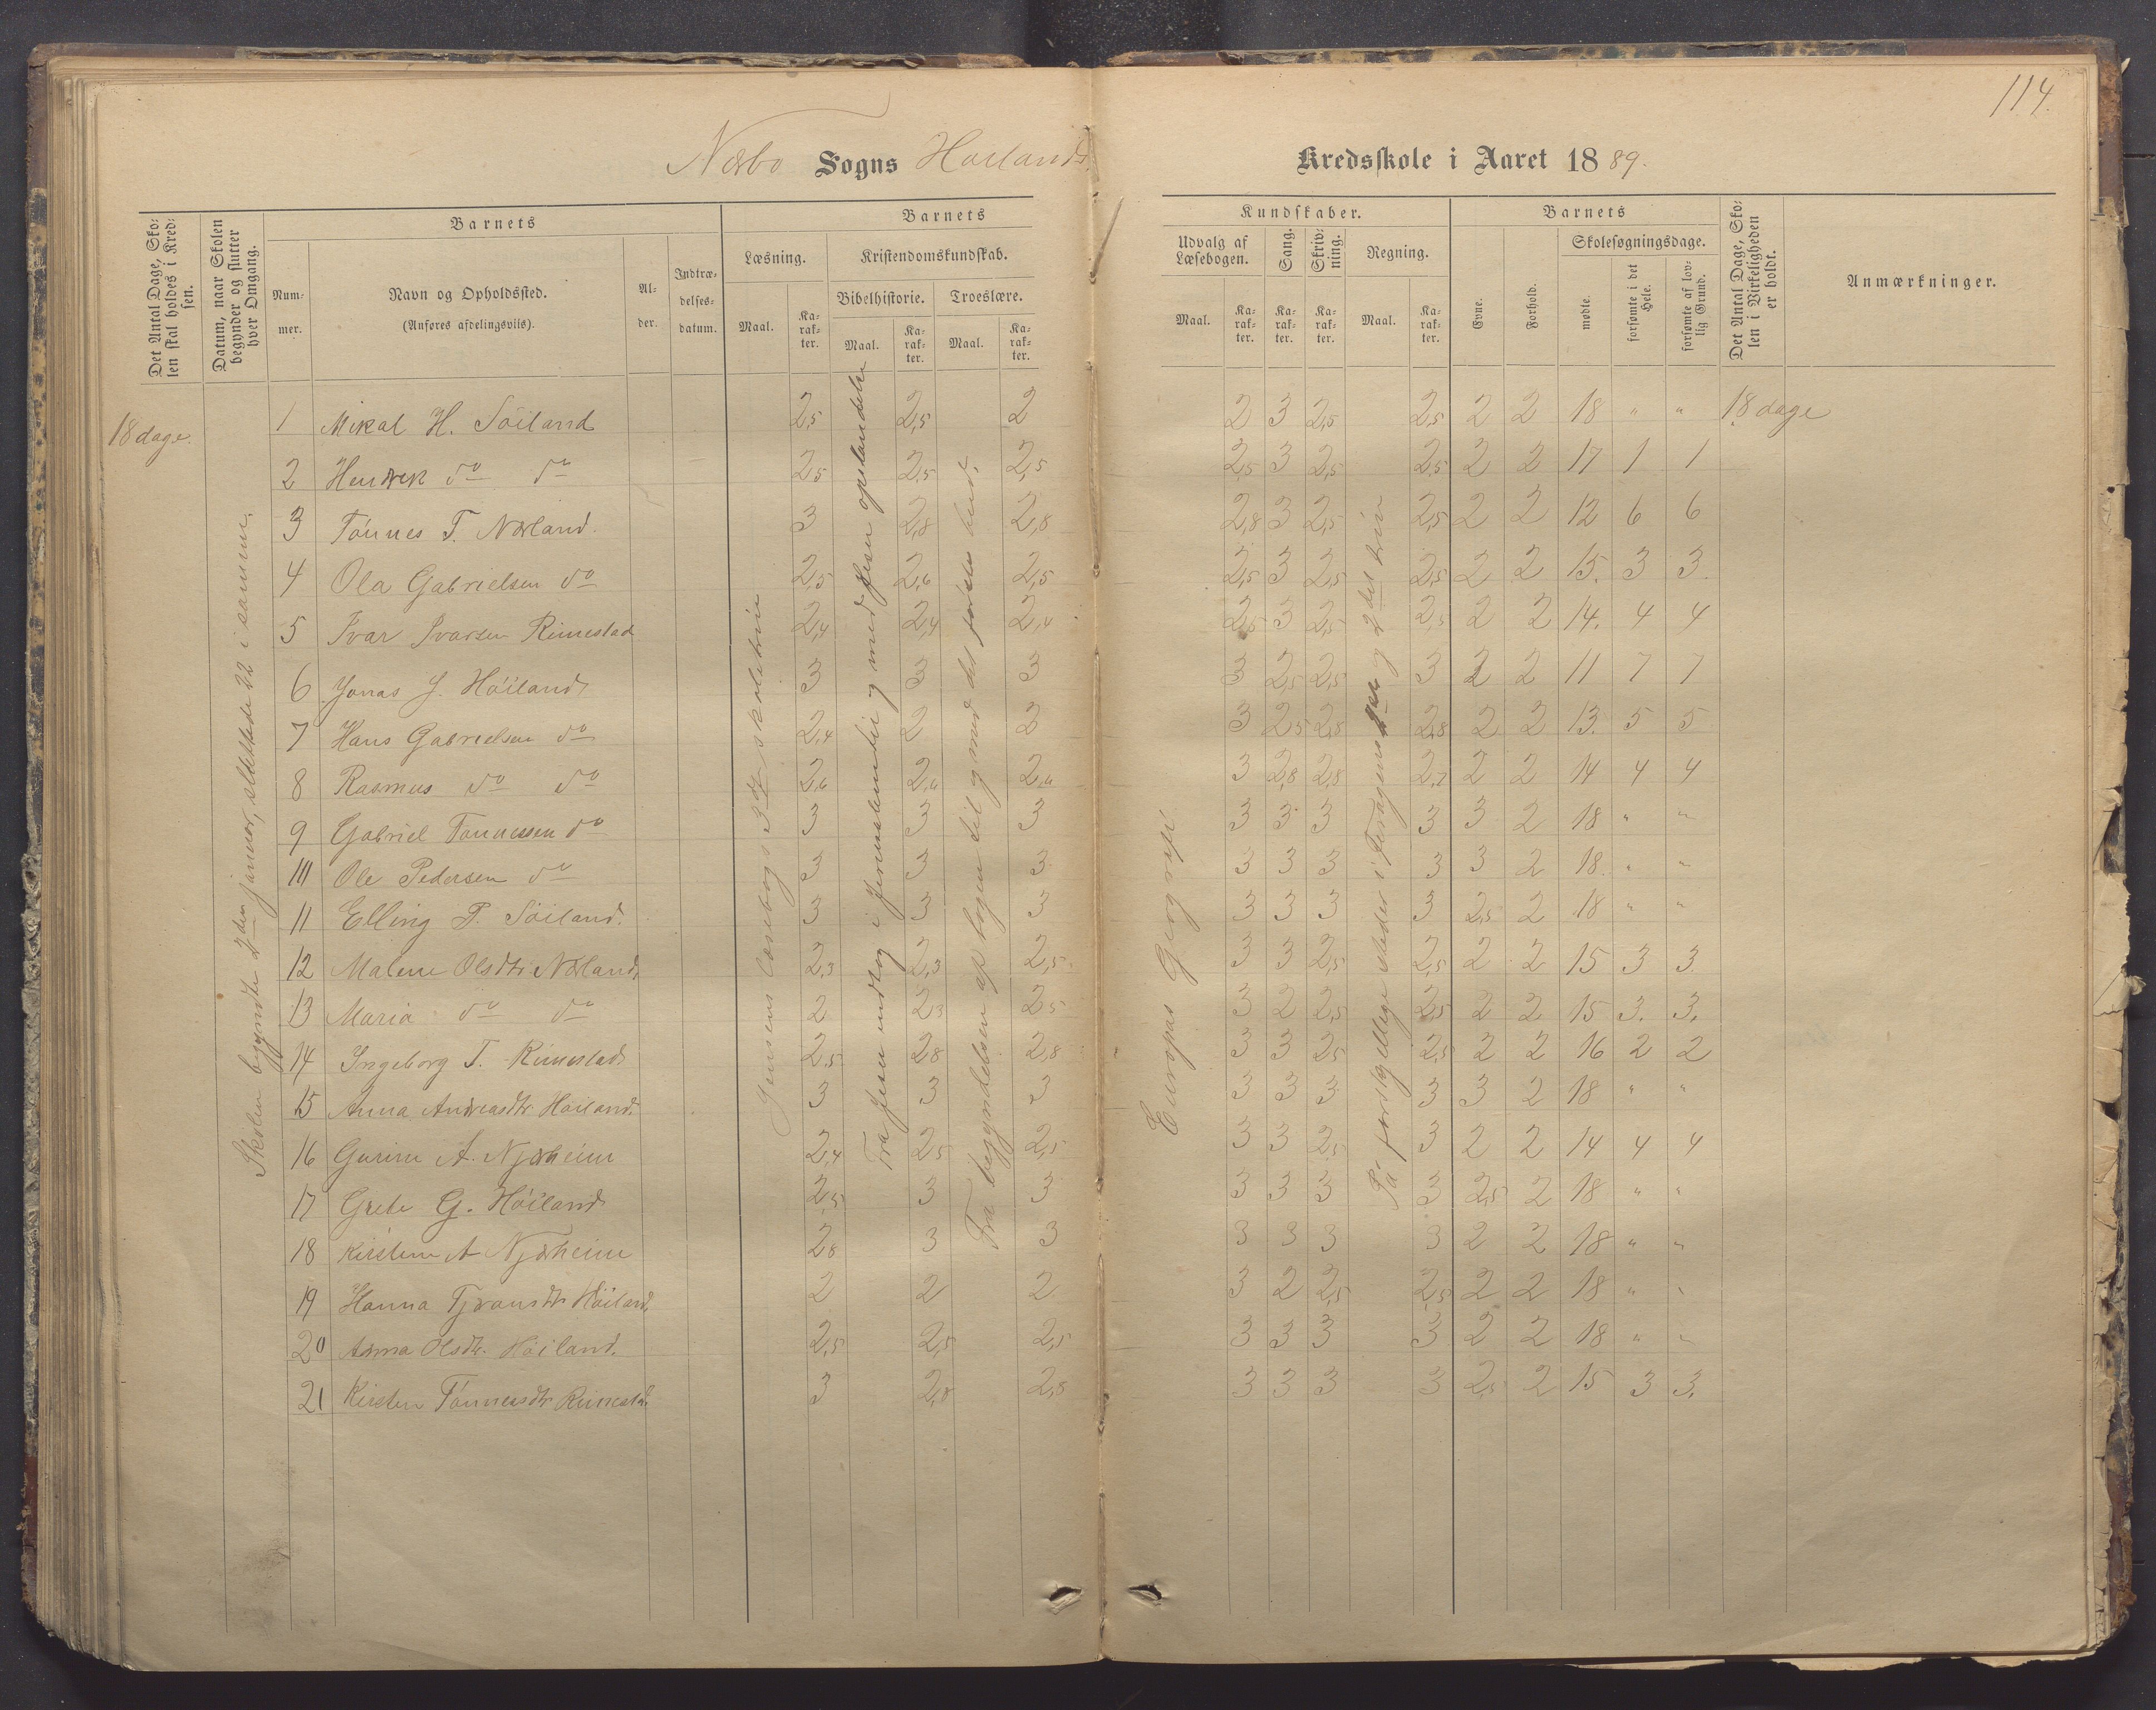 114.
Nærbø Sogns Høilands Kredsskole i Aaret 1889.
Det Antal Dage, Skolen skal holdes i Kredsen.
Datum, naar Skolen begynder og slutter hver Omgang.
Barnets
Nummer.
Navn og Opholdssted.
(Anføres afdelingsvils).
Alder.
Indtrædelsesdatum.
Barnets Kundskaber.
Læsning.
Maal. Karakter.
Kristendomskundskab.
Bibelhistorie. Troeslære.
Maal. Karakter. Maal. Karakter.
Udvalg af Læsebogen.
Maal. Karakter.
Sang. Karakter.
Skrivning. Karakter.
Regning.
Maal. Karakter.
Barnets
Evne. Forhold.
Skolesøgningsdage.
mødte. forsømte i det Hele. forsømte af lovlig Grund.
Det Antal Dage, Skolen i Virkeligheden er holdt.
Anmærkninger.
18 dage.
Skolen begyndte 2den januar, sluttede 22 i samme.
Jensens Læsebogs 3die skoletrin
Fra Jesu indtog i Jerusalem til og med Jesu opstandelse
Fra begyndelsen af bogen til og med det første bud.
Europas Geografi
På forskjellige steder i 1ste og 2det trin
1 Mikal H. Söiland 2,5 2,5 2 2 3 2,5 2,5 2 2 18 " " 18 dage
2 Henrek do do 2,5 2,5 2,5 2,5 3 2,5 2,5 2 2 17 1 1
3 Tönnes T. Nærland. 3 2,8 2,8 2,8 3 2,5 2,5 2 2 12 6 6
4 Ola Gabrielsen do 2,5 2,6 2,5 2,5 3 2,5 2,5 2 2 15. 3 3.
5 Ivar Ivarsen Rimestad 2,4 2,4 2,4 2,5 3 2,5 2,5 2 2 14. 4 4
6 Jonas J. Höiland 3 3 3 3 2,5 2,5 3 2 2 11 7 7
7 Hans Gabrielsen do 2,4 2 2 3 2,5 2,8 2,8 2 2 13. 5 5
8 Rasmus do do 2,6 2,6 2,6 3 2,8 2,8 2,7 2 2 14 4 4
9 Gabriel Tönnessen do 3 3 3 3 3 3 3 3 2 18 " "
10 Ole Pedersen do 3 3 3 3 3 3 3 3 2 18 " "
11 Elling P. Söiland. 3 3 3 3 3 3 3 2,5 2 18 " "
12 Malene Olsdtr Nærland, 2,3 2,3 2,5 3 3 2,5 2,5 2 2 15 3 3
13 Maria do do 2 2,3 2,5 3 2 2,5 2,5 2 2 15 3. 3.
14 Ingeborg T. Rimestad 2,5 2,8 2,8 3 3 2,5 2,5 2 2 16 2 2
15 Anna Andreasdtr Höiland. 3 3 3 3 3 3 3 3 2 18 " "
16 Gurine A. Njærheim 2,4 2,5 2,5 3 3 2,5 3 2 2 14 4 4
17 Grete G. Höiland 2,5 3 3 3 3 3 3 2,5 2 18 " "
18 Kirstine A Njærheim 2,8 3 3 3 3 3 3 2 2 18 " "
19 Hanna Tjransdtr Höiland. 2 2 2 3 2 2,5 2,5 2 2 18 " "
20 Anna Olsdtr. Höiland. 2,5 2,5 2,5 3 3 3 3 2 2 18 " "
21 Kirsten Tönnesdtr Rimestad. 3 2,8 2,8 3 3 3 3 2,5 2 15 3 3.